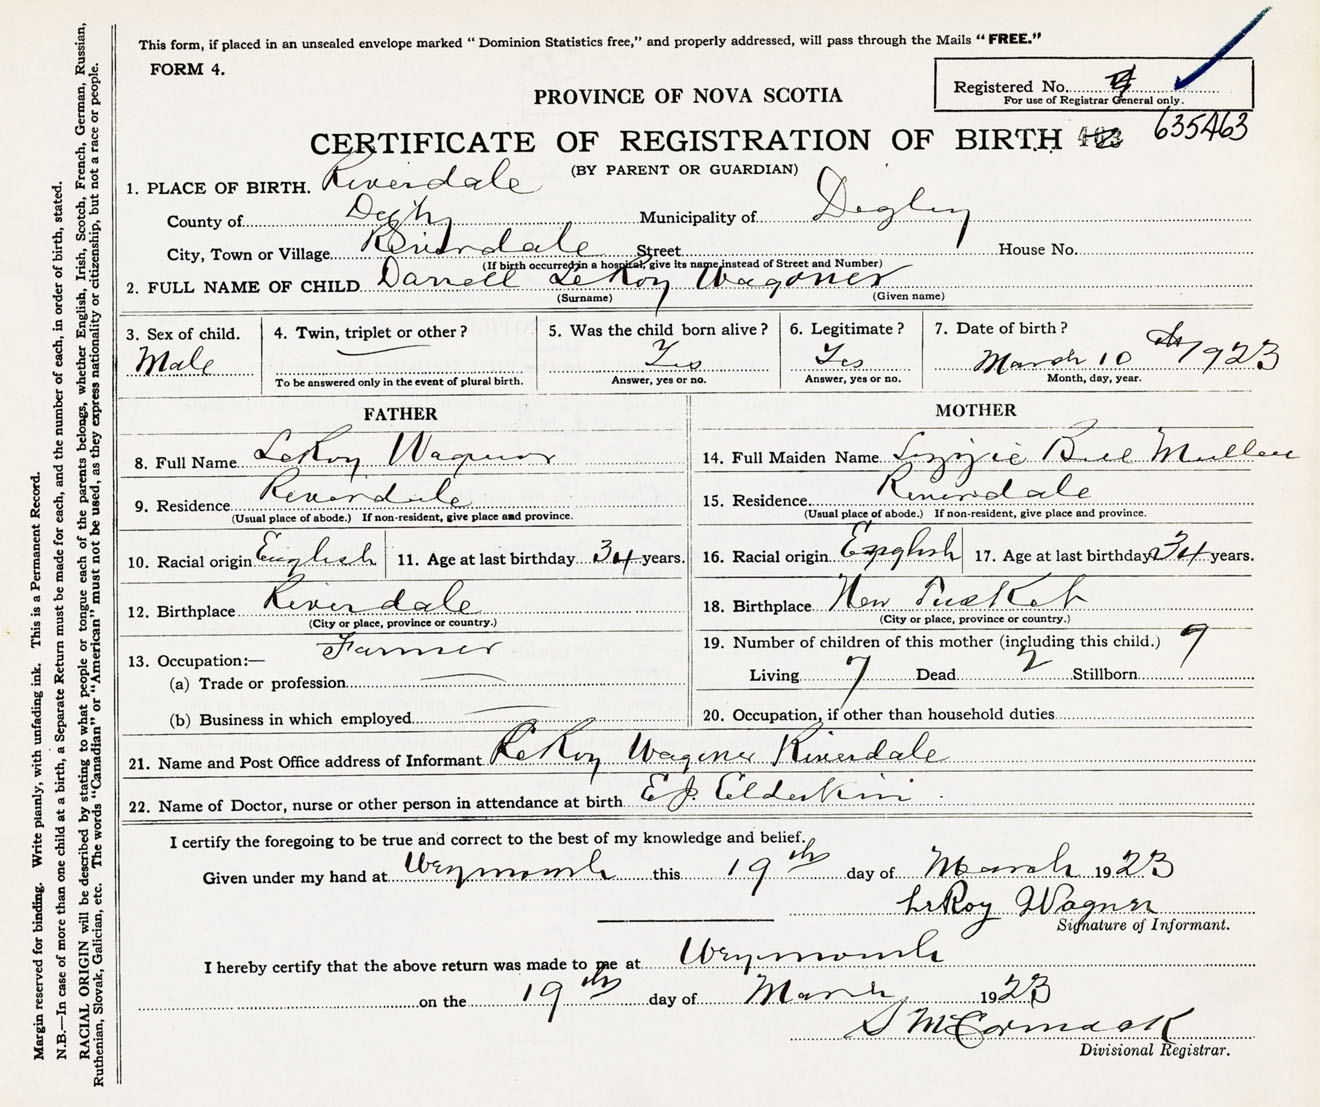 This form, if placed in an unsealed envelope marked " Dominion Statistics free," and properly addressed, will pass through the Mails " FREE."
FORM 4.
Registered No.
For use of Registrar General only.
PROVINCE OF NOVA SCOTIA
635463
CERTIFICATE OF REGISTRATION OF BIRTH
(BY PARENT OR GUARDIAN)
1. PLACE OF BIRTH. Riverdale
County of Digby Municipality of Digby
City, Town or Village Riverdale Street House No.
(If birth occurred in a hospital, give its name instead of Street and Number)
2. FULL NAME OF CHILD Darrell LeRoy Wagoner
(Surname) (Given name)
3. Sex of child. Male
4. Twin, triplet or other?
To be answered only in the event of plural birth.
5. Was the child born alive? Yes
Answer, yes or no.
6. Legitimate? Yes
Answer, yes or no.
7. Date of birth? March 10th 1923
Month, day, year.
FATHER
8. Full Name LeRoy Wagner
9. Residence Riverdale
(Usual place of abode.) If non-resident, give place and province.
10. Racial origin English 11. Age at last birthday 34 years.
12. Birthplace Riverdale
(City or place, province or country.)
13. Occupation:— Farmer
(a) Trade or profession
(b) Business in which employed
MOTHER
14. Full Maiden Name Lizzie Bell Mullen
15. Residence Riverdale
(Usual place of abode.) If non-resident, give place and province.
16. Racial origin English 17. Age at last birthday 34 years.
18. Birthplace New Tusket
(City or place, province or country.)
19. Number of children of this mother (including this child.) 9
Living 7 Dead 2 Stillborn
20. Occupation, if other than household duties
21. Name and Post Office address of Informant LeRoy Wagner Riverdale
22. Name of Doctor, nurse or other person in attendance at birth E.J. Elderkin
I certify the foregoing to be true and correct to the best of my knowledge and belief.
Given under my hand at Weymouth this 19th day of March 1923
LeRoy Wagner
Signature of Informant.
I hereby certify that the above return was made to me at Weymouth
on the 19th day of March 1923
S McCormack
Divisional Registrar.
Margin reserved for binding. Write plainly, with unfading ink. This is a Permanent Record.
N.B.—In case of more than one child at a birth, a Separate Return must be made for each, and the number of each, in order of birth, stated.
RACIAL ORIGIN will be described by stating to what people or tongue each of the parents belongs, whether English, Irish, Scotch, French, German, Russian,
Ruthenian, Slovak, Galician, etc. The words "Canadian" or "American" must not be used, as they express nationality or citizenship, but not a race or people.